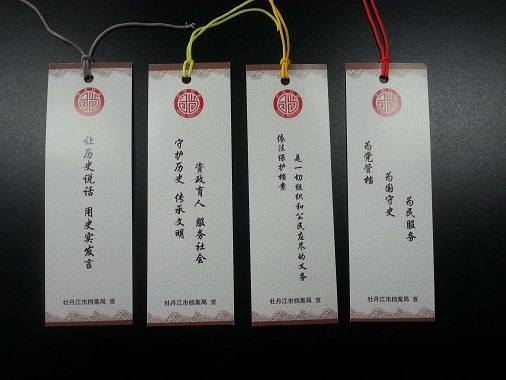 让历史说话 用史实发言
牡丹江市档案局 宣
守护历史 传承文明
资政育人 服务社会
牡丹江市档案局 宣
依法保护档案
是一切组织和公民应尽的义务
牡丹江市档案局 宣
为党管档
为国守史
为民服务
牡丹江市档案局 宣